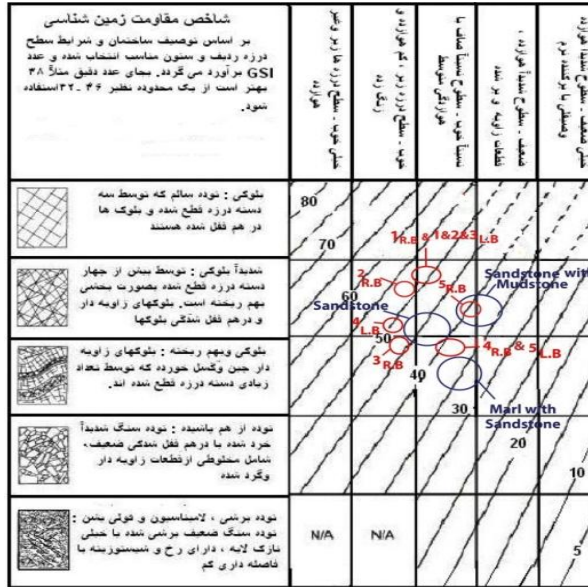 شاخص مقاومت زمین شناسی
بر اساس توصیف ساختمان و شرایط سطح
درزه ردیف و ستون مناسب انتخاب شده و عدد
GSI برآورد می گردد. بجای عدد دقیق مثلاً ۳۸
بهتر است از یک محدوده نظیر ۴۶-۳۲ استفاده
شود.
خیلی خوب - سطح درزه ها زبر و غیر
هوازده
خوب - سطح درزه زبر ، کم هوازده و
زنگ زده
نسبتاً خوب - سطوح نسبتاً صاف با
هوازدگی متوسط
ضعیف - سطوح شدیداً هوازده ،
قطعات زاویه و پر شده
خیلی ضعیف - سطوح شدیداً هوازده
وصیقلی با پرکننده نرم
بلوکی : توده سالم که توسط سه
دسته درزه قطع شده و بلوک ها
در هم قفل شده هستند
شدیداً بلوکی : توسط بیش از چهار
دسته درزه قطع شده بصورت بخشی
بهم ریخته است. بلوکهای زاویه دار
و درهم قفل شدگی بلوکها
بلوکی وبهم ریخته : بلوکهای زاویه
دار چین وگسل خورده که توسط تعداد
زیادی دسته درزه قطع شده اند.
توده از هم پاشیده : توده سنگ شدیداً
خرد شده با درهم قفل شدگی ضعیف،
شامل مخلوطی ازقطعات زاویه دار
وگرد شده
توده برشی ، لامیناسیون و فولی یشن :
توده سنگ ضعیف برشی شده با خیلی
نازک لایه ، دارای رخ و شیستوزیته با
فاصله داری کم
80
70
60
50
40
30
20
10
5
N/A
N/A
1R.B & 1&2&3L.B
2R.B
5R.B
Sandstone with
Mudstone
Sandstone
4L.B
3R.B
4R.B & 5L.B
Marl with
Sandstone